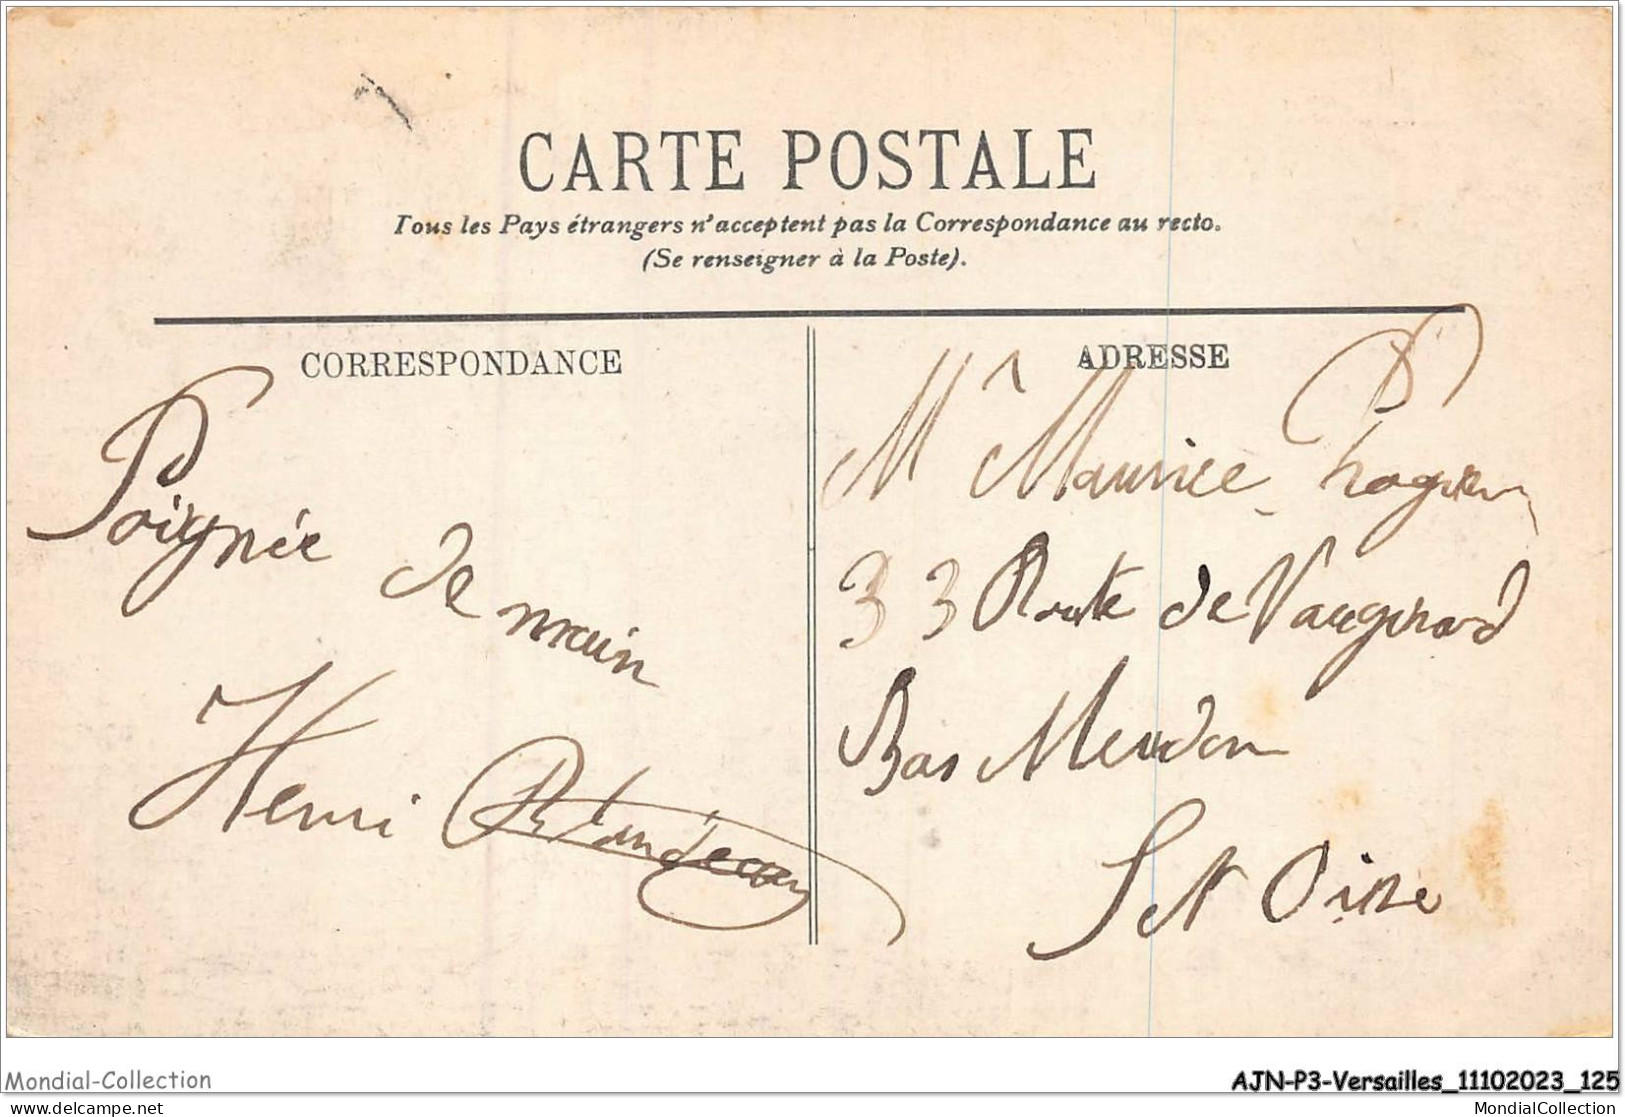 CARTE POSTALE
Tous les Pays étrangers n'acceptent pas la Correspondance au recto.
(Se renseigner à la Poste).
CORRESPONDANCE
Poignée de main
Henri
ADRESSE
Mr Maurice
33 Route de Vaugirard
Bas Meudon
S et Oise
Mondial-Collection
AJN-P3-Versailles_11102023_125
www.delcampe.net
MondialCollection